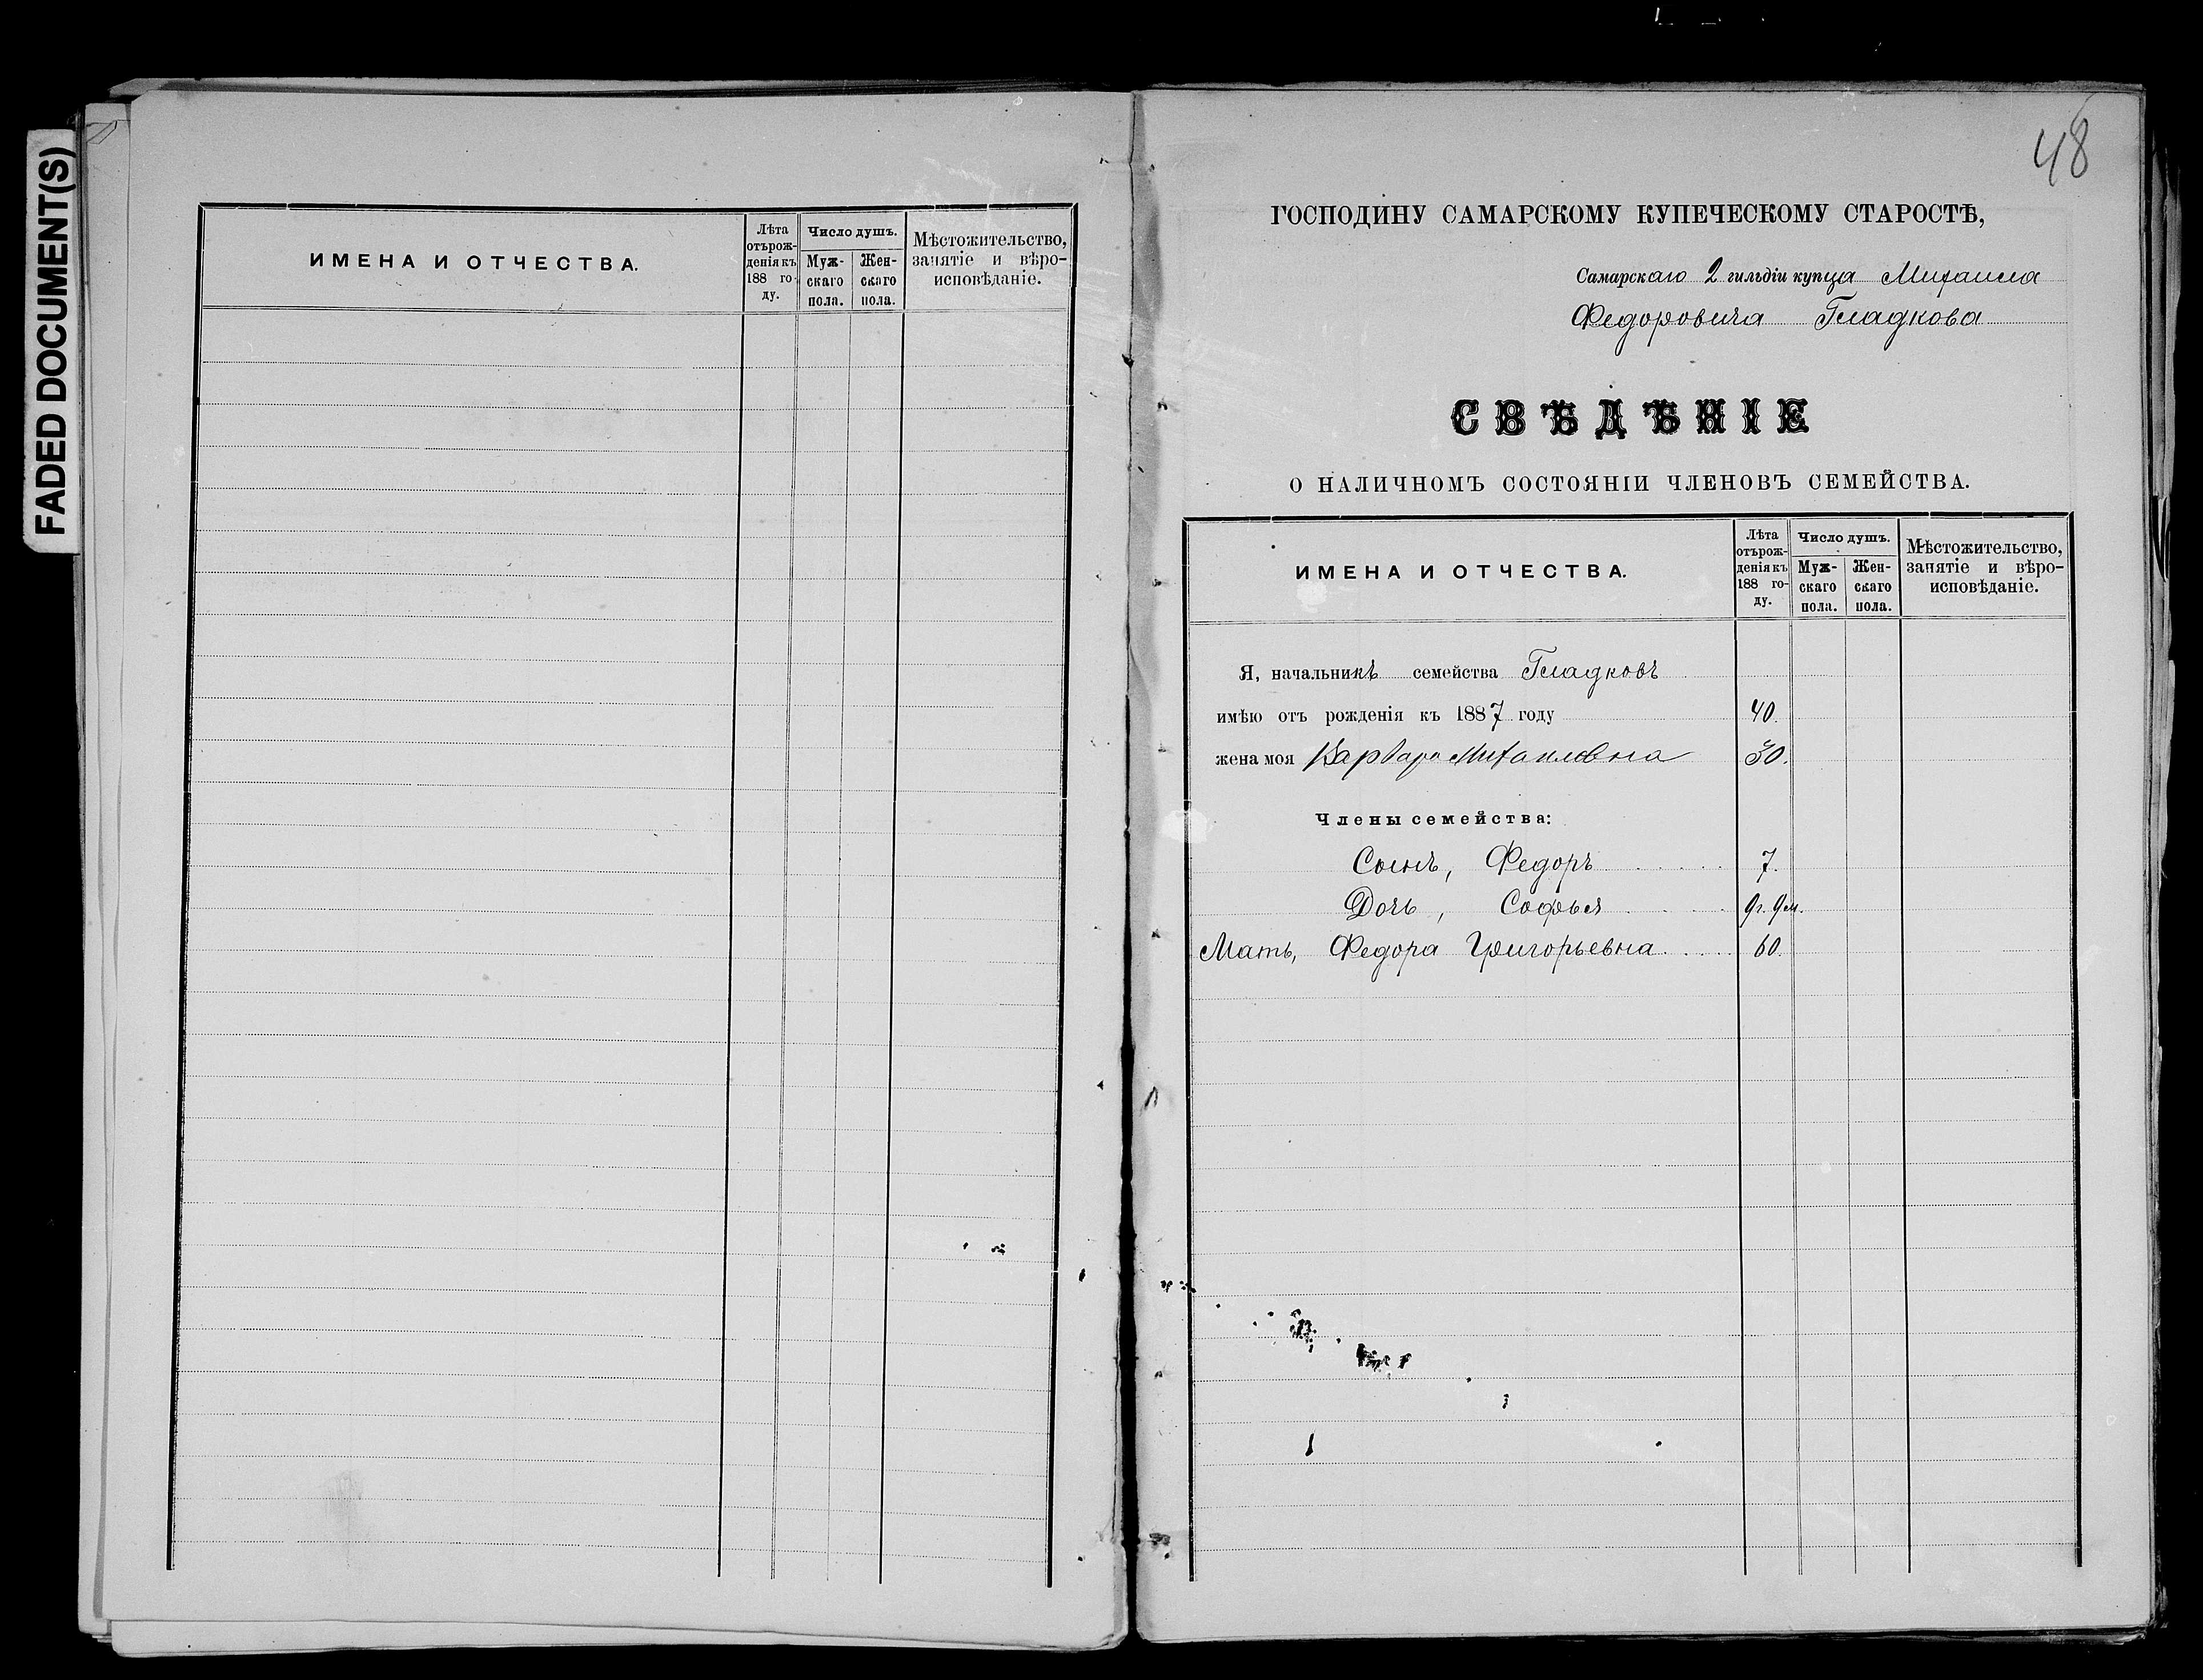 FADED DOCUMENT(S)
ИМЕНА И ОТЧЕСТВА.
Лѣта отърож-денія къ 188 го-ду.
Число душъ.
Муж-скаго пола.
Жен-скаго пола.
Мѣстожительство, занятіе и вѣро-исповѣданіе.
48
ГОСПОДИНУ САМАРСКОМУ КУПЕЧЕСКОМУ СТАРОСТѢ,
Самарскаго 2 гильдіи купца Михаила
Федоровича Гладкова
СВѢДѢНІЕ
О НАЛИЧНОМЪ СОСТОЯНІИ ЧЛЕНОВЪ СЕМЕЙСТВА.
ИМЕНА И ОТЧЕСТВА.
Лѣта отърож-денія къ 188 го-ду.
Число душъ.
Муж-скаго пола.
Жен-скаго пола.
Мѣстожительство, занятіе и вѣро-исповѣданіе.
Я, начальникъ семейства Гладковъ
имѣю отъ рожденія къ 1887 году 40.
жена моя Варвара Михаиловна 30.
Члены семейства:
Сынъ, Федоръ 7.
Дочь, Софья 9г. 9м.
Мать, Федора Григорьевна 60.